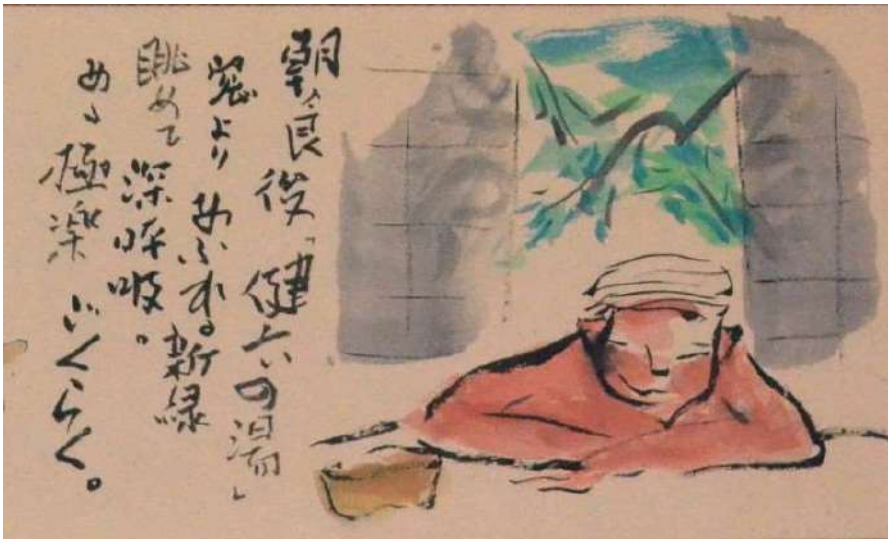 朝食後「健六の湯」
窓よりあふれる新緑
眺めて深呼吸。
あゝ極楽ごくらく。